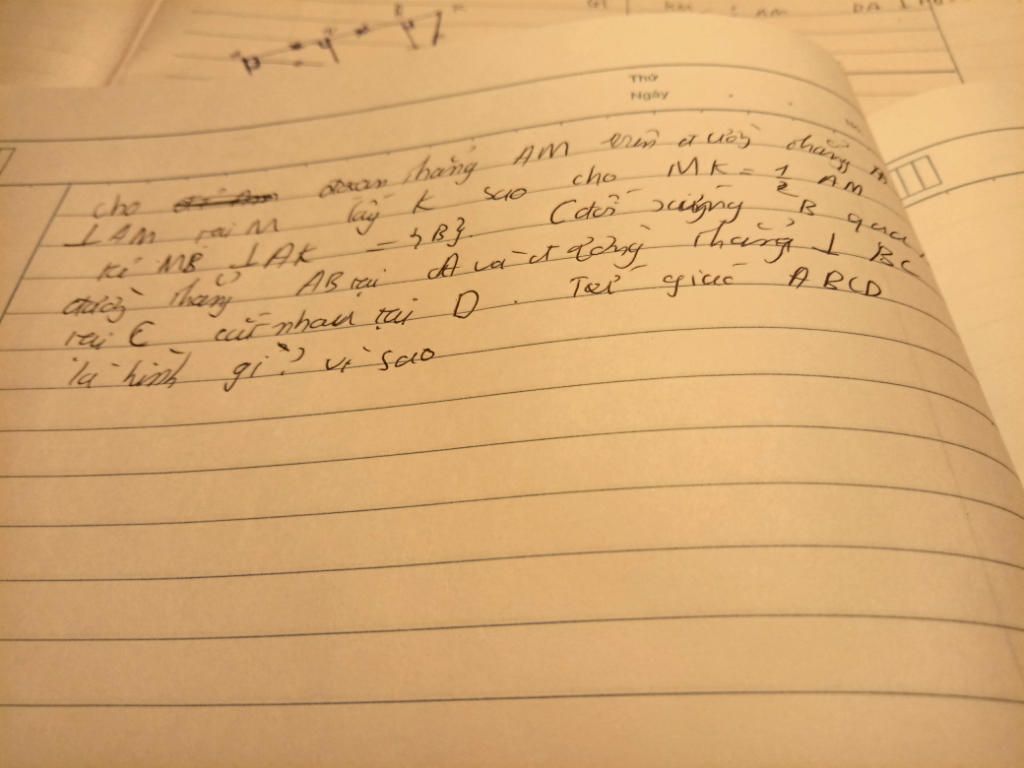 Thứ
Ngày
cho đoạn thẳng AM trên đường thẳng
⊥ AM tại M lấy K sao cho MK = 1/2 AM
kẻ MB ⊥ AK = {B}. C đối xứng B qua
đường thẳng AB tại A và đường thẳng ⊥ BC
tại C cắt nhau tại D. Tứ giác ABCD
là hình gì? vì sao